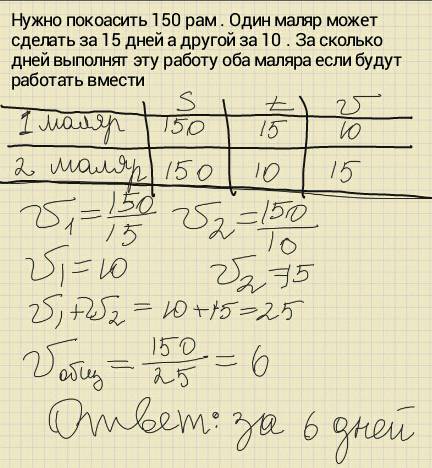 Нужно покоасить 150 рам . Один маляр может
сделать за 15 дней а другой за 10 . За сколько
дней выполнят эту работу оба маляра если будут
работать вмести
S t v
1 маляр 150 15 10
2 маляр 150 10 15
v1 = 150/15 v2 = 150/10
v1 = 10 v2 = 15
v1 + v2 = 10 + 15 = 25
v общ = 150/25 = 6
Ответ: за 6 дней